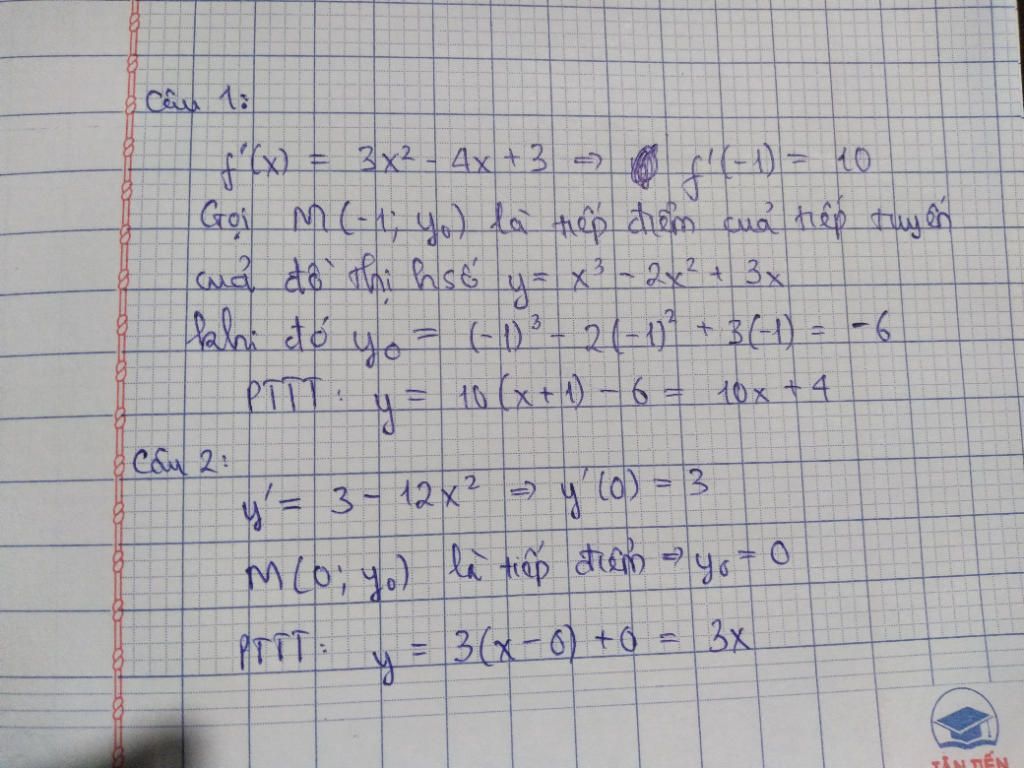 Câu 1:
f'(x) = 3x² - 4x + 3 ⇒ f'(-1) = 10
Gọi M(-1; y₀) là tiếp điểm của tiếp tuyến
của đồ thị hsố y = x³ - 2x² + 3x
khi đó y₀ = (-1)³ - 2(-1)² + 3(-1) = -6
PTTT: y = 10(x+1) - 6 = 10x + 4
Câu 2:
y' = 3 - 12x² ⇒ y'(0) = 3
M(0; y₀) là tiếp điểm ⇒ y₀ = 0
PTTT: y = 3(x - 0) + 0 = 3x
TÂN TIẾN